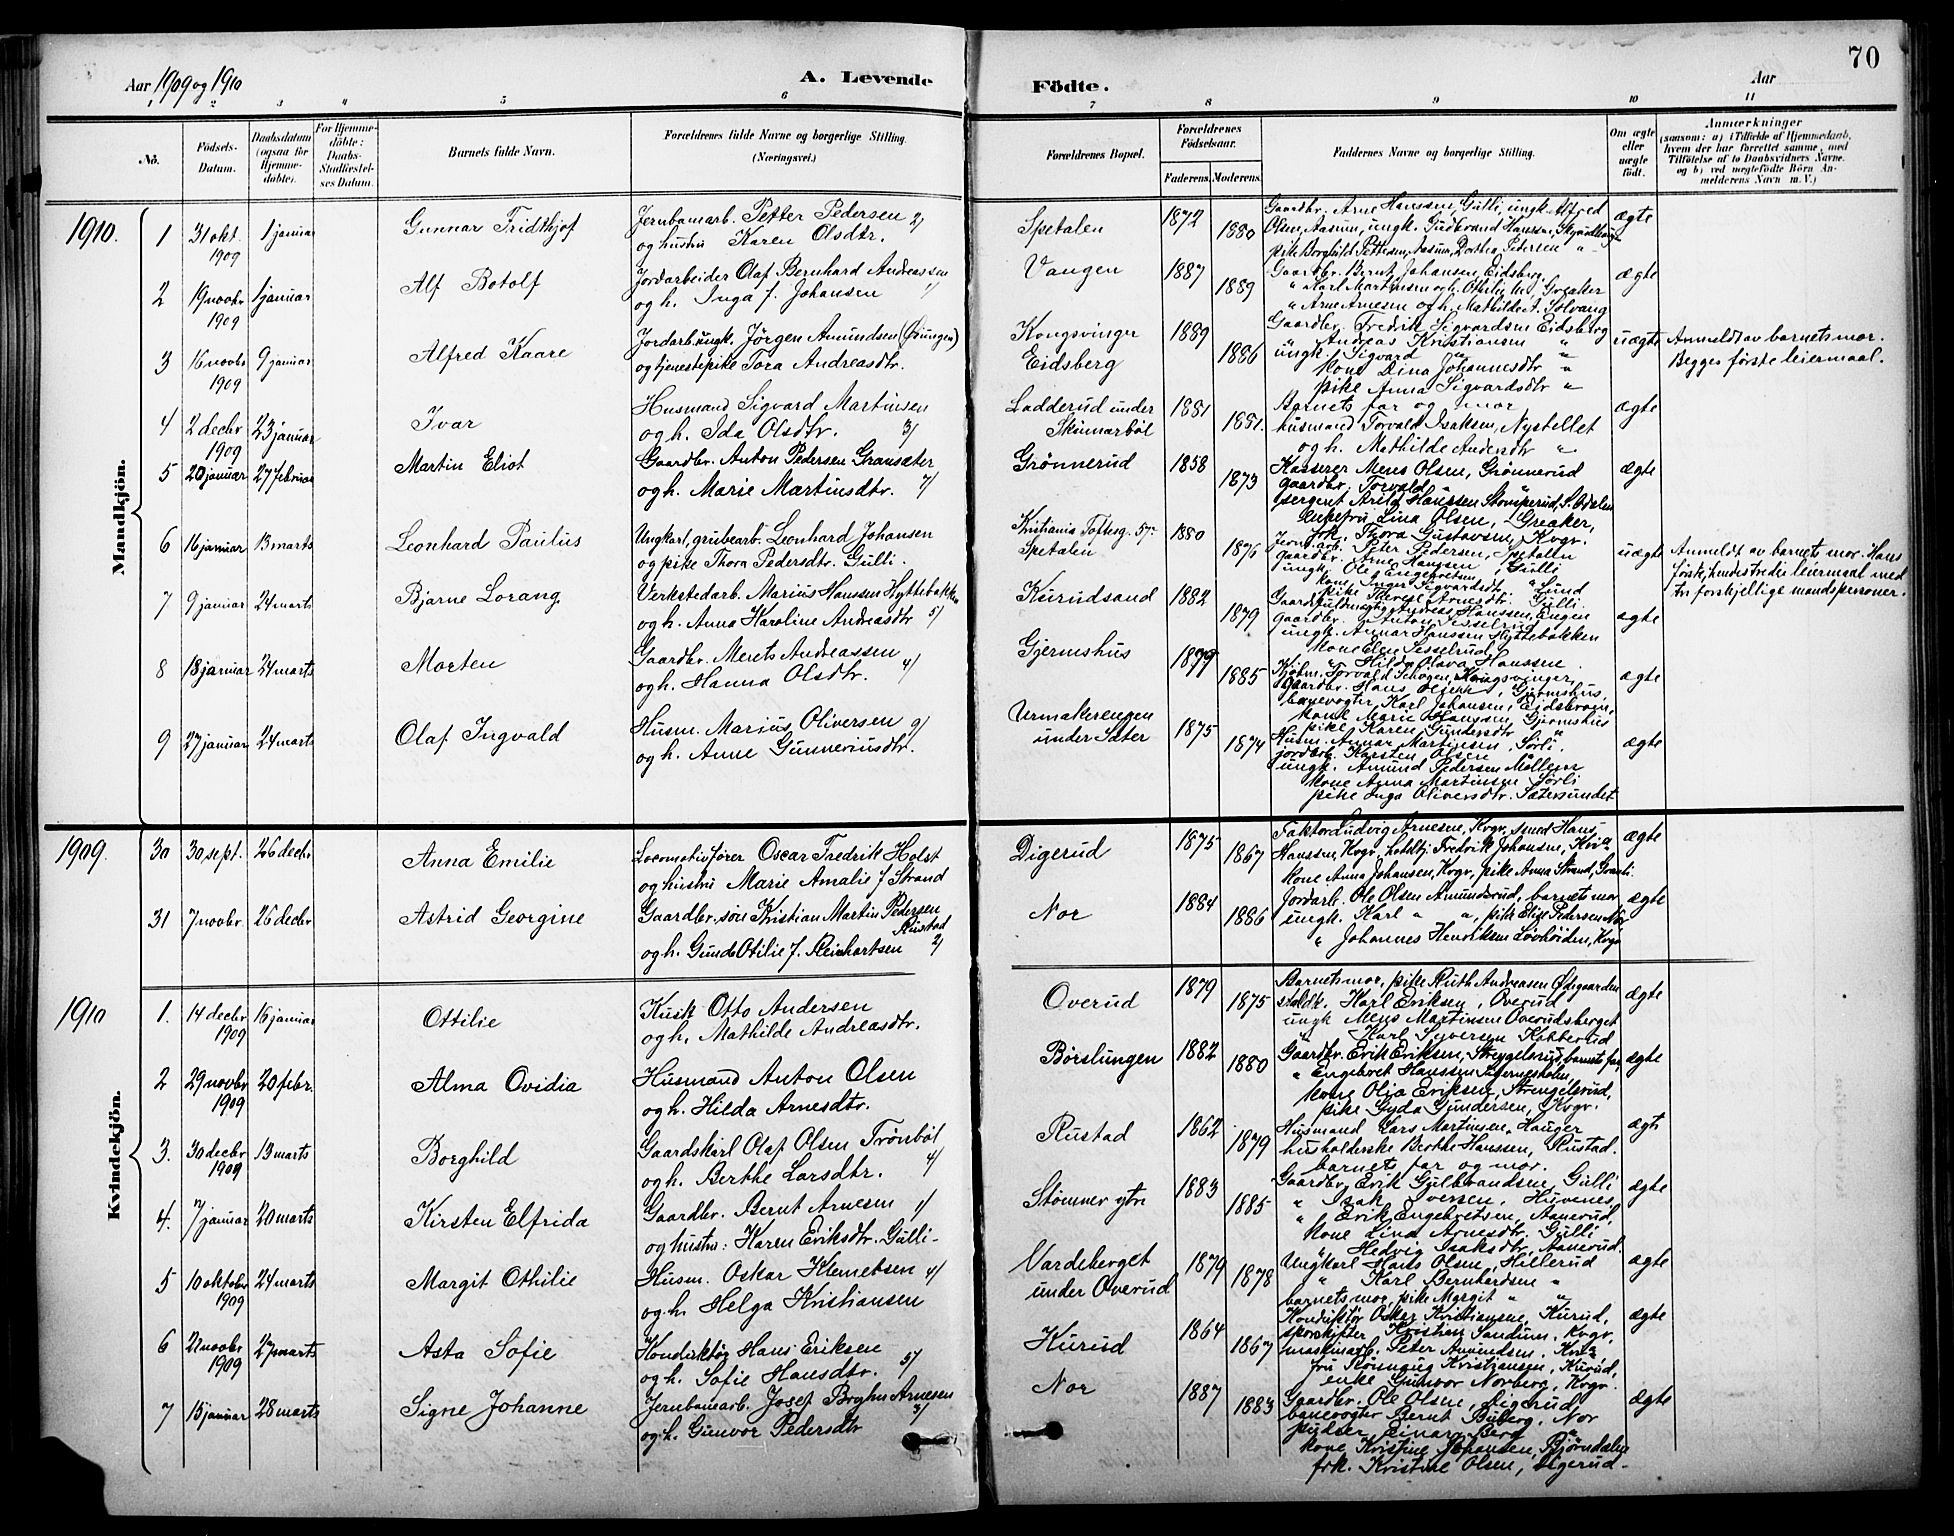 70
Aar 1909 og 1910
A. Levende
Födte.
Aar
1 2 3 4 5 6 7 8 9 10 11
No.
Födsels-
Datum.
Daabsdatum
(ogsaa for
Hjemme-
döbte).
For Hjemme-
döbte:
Daabs-
Stadfæstel-
ses Datum.
Barnets fulde Navn.
Forældrenes fulde Navne og borgerlige Stilling
(Næringsvei.)
Forældrenes Bopæl.
Forældrenes
Födselsaar.
Faderens. Moderens.
Faddernes Navne og borgerlige Stilling.
Om ægte
eller
uægte
født.
Anmærkninger
(saasom: a) i Tilfælde af Hjemmedaab,
hvem der har forrettet samme, med
Tilföielse af to Daabsvidners Navne.
og b) ved uægtefödte Börn An-
melderens Navn m. V.)
Mandkjön.
1910. 1 31 okt. 1909 1 januar
Gunnar Fridthjof
Jernbanearb. Petter Pedersen 2/
og hustru Karen Olsdtr.
Spetalen
1872 1880
Gaardbr. Arne Hanssen, Gulli, ungk. Alfred
Olsen, Aasum, ungk. Gudbrand Hanssen,
pike Borghild Pettersen, Aasum, Dorthea Pedersen "
ægte
2 19 novbr 1909 1 januar
Alf Botolf
Jordarbeider Olaf Bernhard Andreassen
og h. Inga f. Johansen 1/
Vangen
1887 1889
Gaardbr. Bernt Johansen, Eidsberg
" Karl Martinsen og h. Othilie M., Greaker
" Arne Arnesen og h. Mathilde A. Solvang
ægte
3 16 novbr 1909 9 januar
Alfred Kaare
Jordarb. ungk. Jörgen Amundsen
og tjenestepike Tora Andreasdtr.
Kongsvinger
Eidsberg
1889 1886
Gaardbr. Fredrik Sigvardsen Eidsberg
" Andreas Kristiansen "
ungk. Sigvard " "
kone Dina Johannesdtr "
pike Anna Sigvardsdtr "
uægte
Anmeldt av barnets mor.
Begges förste leiermaal.
4 2 decbr 1909 23 januar
Ivar
Husmand Sigvard Martinsen
og h. Ida Olsdtr. 3/
Ladderud under
Skinnarböl
1881 1881.
Barnets far og mor
husmand Torvald Isaksen, Nystellet
og h. Mathilde Andersdtr "
ægte
5 20 januar 27 februar
Martin Eliot
Gaardbr. Anton Pedersen Gransæter
og h. Marie Martinsdtr. 7/
Grönnerud
1858 1873
Kasserer Mens Olsen, Grönnerud
gaardbr. Torvald " "
sergent Arild Hanssen Stomperud, S. Odalen
Enkefru Lina Olsen, Greaker,
frk. Thora Gustavsen, Kvgr.
ægte
6 16 januar 13 marts
Leonhard Paulus
Ungkarl, grubearb. Leonhard Johansen
og pike Thora Pedersdtr. Gulli.
Kristiania Toftesg. 57.
Spetalen
1880 1876
Jernb.arb. Peter Pedersen, Spetalen
gaardbr. Arne Hanssen, Gulli
ungk. Ole Engebretsen "
kone Inger Sigvardsdtr. Lund
pike Arnesdtr. Gulli.
uægte
Anmeldt av barnets mor. Hans
förste, hendes tredie leiermaal med
tre forskjellige mandspersoner.
7 9 januar 24 marts
Bjarne Lorang
Verkstedarb. Marius Hanssen Hyttebakken
og h. Anna Karoline Andreasdtr 5/
Kurudsand
1882 1879
Gaardsfuldmægtig Andreas Hanssen, Engen
gaardbr. Anton Tesselrud
ungk. Annar Hanssen Hyttebakken
kone Elen Tesselrud,
" Hilda Olava Hanssen
ægte
8 18 januar 24 marts
Morten
Gaardbr. Merets Andreassen
og h. Hanna Olsdtr. 4/
Gjermshus
1879 1885
Kjöbm. Torvald Schøgen, Kongsvinger,
gaardbr. Hans Olsen, Gjermshus,
banevogter Karl Johansen, Eidsbroen,
kone Marie Hanssen, Gjermshus
pike Karen Gundersdtr "
ægte
9 27 januar 24 marts
Olaf Ingvald
Husm. Marius Oliversen 9/
og h. Anne Gunneriusdtr.
Urmakerengen
under Sæter
1875 1874
Husm. Annar Martinsen, Sörli.
jordarb. Karsten Olsen
ungk. Amund Pedersen Mellem
kone Anna Martinsen Sörli
pike Inga Oliversdtr. Sætersundet
ægte
Kvindekjön.
1909. 30 30 sept. 26 decbr
Anna Emilie
Locomotivförer Oscar Fredrik Holst
og hustru Marie Amalie f Strand
Digerud
1875 1867
Faktor Ludvig Arnesen, Kvgr, smed Hans
Hanssen, Kvgr, Fredrik Johansen, Kr.a
kone Anna Johansen, Kvgr, pike Anna Strand,
ægte
31 7 novbr. 26 decbr
Astrid Georgine
Gaardbr.sön Kristian Martin Pedersen
Rustad
og h. Gunda Otilie f. Reinhartsen 2/
Nor
1884 1886
Jordarb. Ole Olsen Amunderud, barnets mor
ungk. Karl " ", pike Elise Pedersen Nor
" Johannes Henriksen Lövhöiden, Kvgr
ægte
1910 1. 14 decbr 1909 16 januar
Ottilie
Kusk Otto Andersen
og h. Mathilde Andreasdtr.
Overud
1879 1875
Barnets mor, pike Ruth Andreasen Østgaarden
staldk. Karl Eriksen, Overud
ungk Mens Martinsen Overudsberget
" Karl Syversen Kibberud
ægte
2 29 novbr 1909 20 febr.
Alma Ovidia
Husmand Anton Olsen
og h. Hilda Arnesdtr.
Börslungen
1882 1880
Gaardbr. Erik Eriksen, Strengelsrud, barnets far,
" Engebret Hanssen Tjernesholm,
kone Olga Eriksen, Strengelsrud,
pike Gyda Gundersen, Kvgr.
ægte
3. 30 decbr 1909 13 marts
Borghild
Gaardskarl Olaf Olsen Trönböl
og h. Berthe Larsdtr. 4/
Rustad
1862 1879
Husmand Lars Martinsen, Hauger
husholderske Berthe Hanssen, Rustad.
barnets far og mor.
ægt
4. 7 januar 20 marts
Kirsten Elfrida
Gaardbr. Bernt Arnesen 1/
og hustru: Karen Eriksdtr. Gulli-
Stömmer ytre
1883 1885
Gaardbr. Erik Gulbrandsen, Gulli
" Isak Iversen, Huvenes,
" Erik Engebretsen, Aanerud,
kone Lina Arnesdtr. Gulli
" Hedvig Isaksdtr, Aanerud.
ægte
5 10 oktober 1909 24 marts
Margit Othilie
Husm. Oskar Klemetsen 4/
og h. Helga Kristiansen
Vardeberget
under Overud
1879 1878
Ungkarl Hans Olsen, Hillerud
" Karl Bernhardsen "
barnets mor, pike Margit " "
ægte
6 21 novbr 1909 27 marts
Asta Sofie
Konduktör Hans Eriksen
og h. Sofie Hansdtr. 5/
Kurud
1864 1867
Konduktör Oskar Kristiansen, Kurud,
sporskifter Kristian Sandum, Kvgr,
maskinarb. Peter Amundsen, Kr.a
fru Rönnaug Kristiansen, Kurud,
enke Gunvor Norberg, Kvgr.
ægte
7 15 januar 28 marts
Signe Johanne
Jernbanearb. Josef Arnesen
og h. Gunvor Pedersdtr
Nor
1887 1883
Gaardbr. Ole Olsen, Digerud
banevogter Bernt Buberg, Nor
pudser Einar Berg "
kone Kristine Johansen, Bjørndalen
frk. Kristine Olsen, Digerud-
ægte